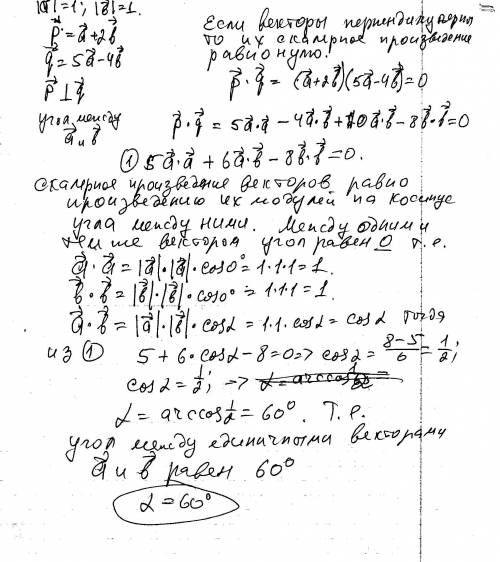 |a⃗|=1; |b⃗|=1.
p⃗ = a⃗+2b⃗
q⃗ = 5a⃗-4b⃗
p⃗ ⊥ q⃗
угол между
a⃗ и b⃗
Если векторы перпендикулярны
то их скалярное произведение
равно нулю.
p⃗ · q⃗ = (a⃗+2b⃗)(5a⃗-4b⃗)=0
p⃗ · q⃗ = 5a⃗·a⃗ - 4a⃗·b⃗ + 10a⃗·b⃗ - 8b⃗·b⃗=0
① 5a⃗·a⃗ + 6a⃗·b⃗ - 8b⃗·b⃗=0.
Скалярное произведение векторов равно
произведению их модулей на косинус
угла между ними. Между одним и
тем же вектором угол равен 0 т.е.
a⃗·a⃗ = |a⃗|·|a⃗|·cos0°=1·1·1=1.
b⃗·b⃗ = |b⃗|·|b⃗|·cos0°=1·1·1=1.
a⃗·b⃗ = |a⃗|·|b⃗|·cosα=1·1·cosα=cosα тогда
из ① 5+6·cosα-8=0=> cosα = (8-5)/6 = 1/2;
cosα = 1/2; =>
α = arccos 1/2 = 60°. Т.е.
угол между единичными векторами
a⃗ и b⃗ равен 60°
α=60°